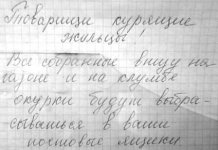 Товарищи курящие
жильцы!
Все собранные внизу на
газоне и на клумбе
окурки будут выбра-
сываться в ваши
почтовые ящики